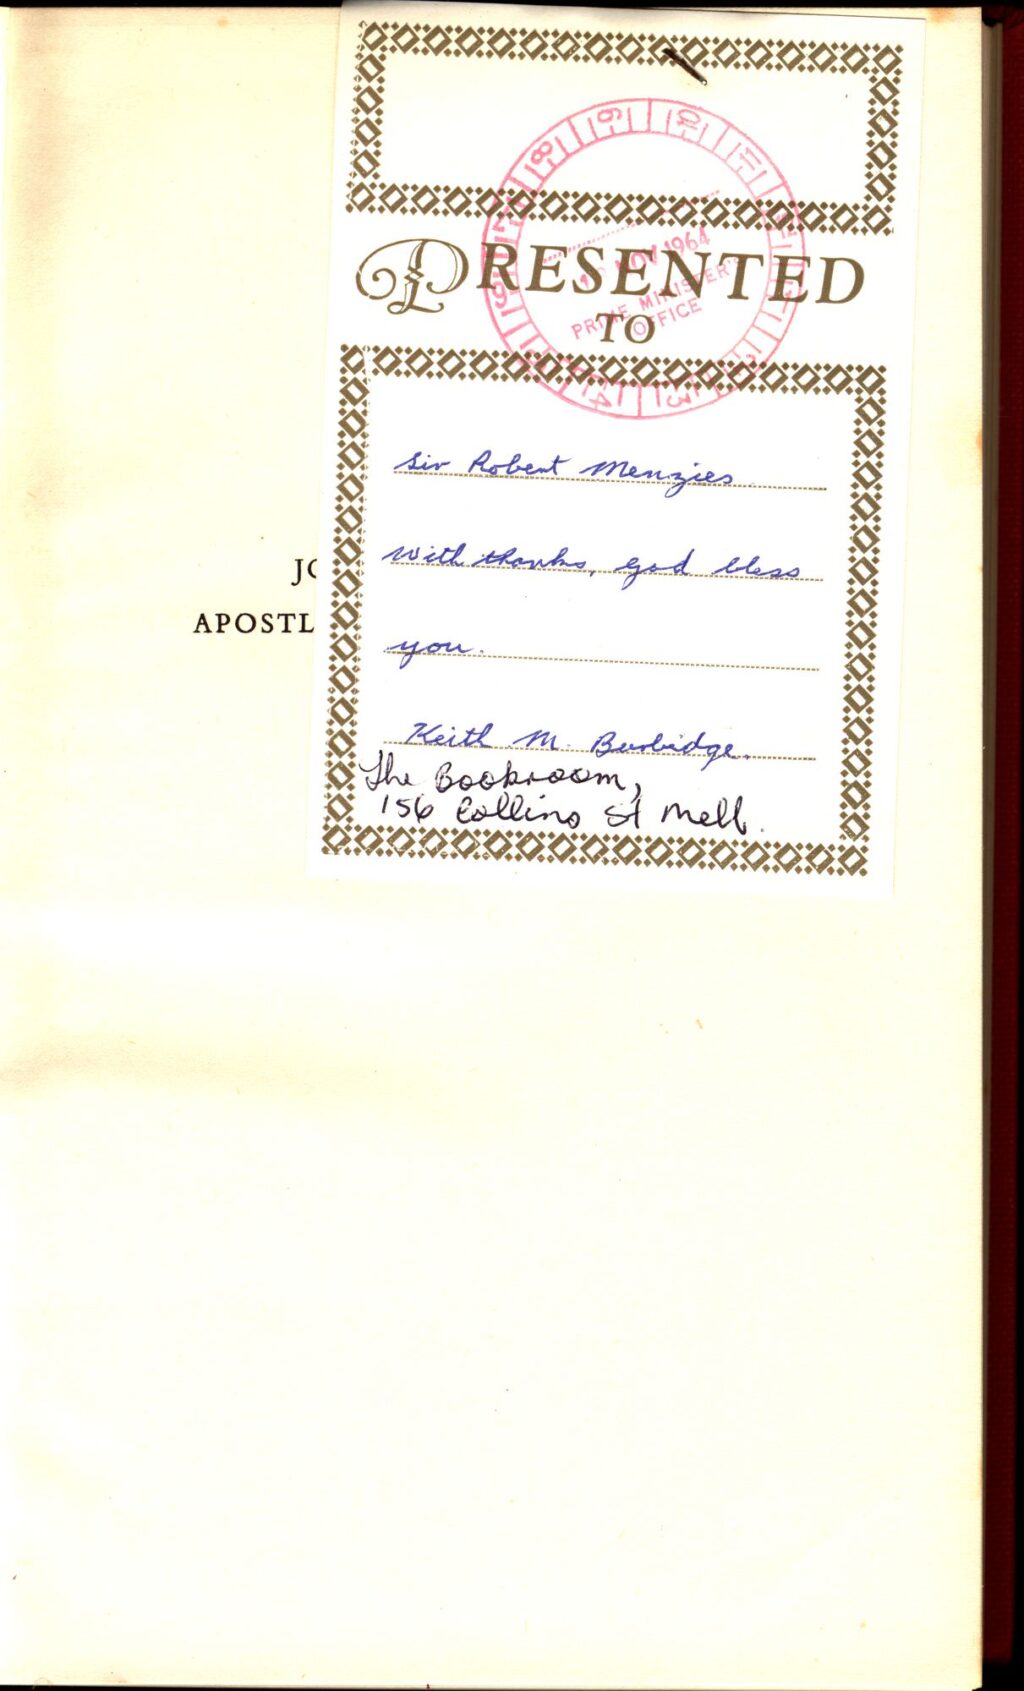 PRESENTED
TO
NOV 1964
PRIME MINISTER'S
OFFICE
Sir Robert Menzies
With thanks, God bless
you.
Keith M. Burbidge.
The Bookroom,
156 Collins St Melb.
JO
APOSTL